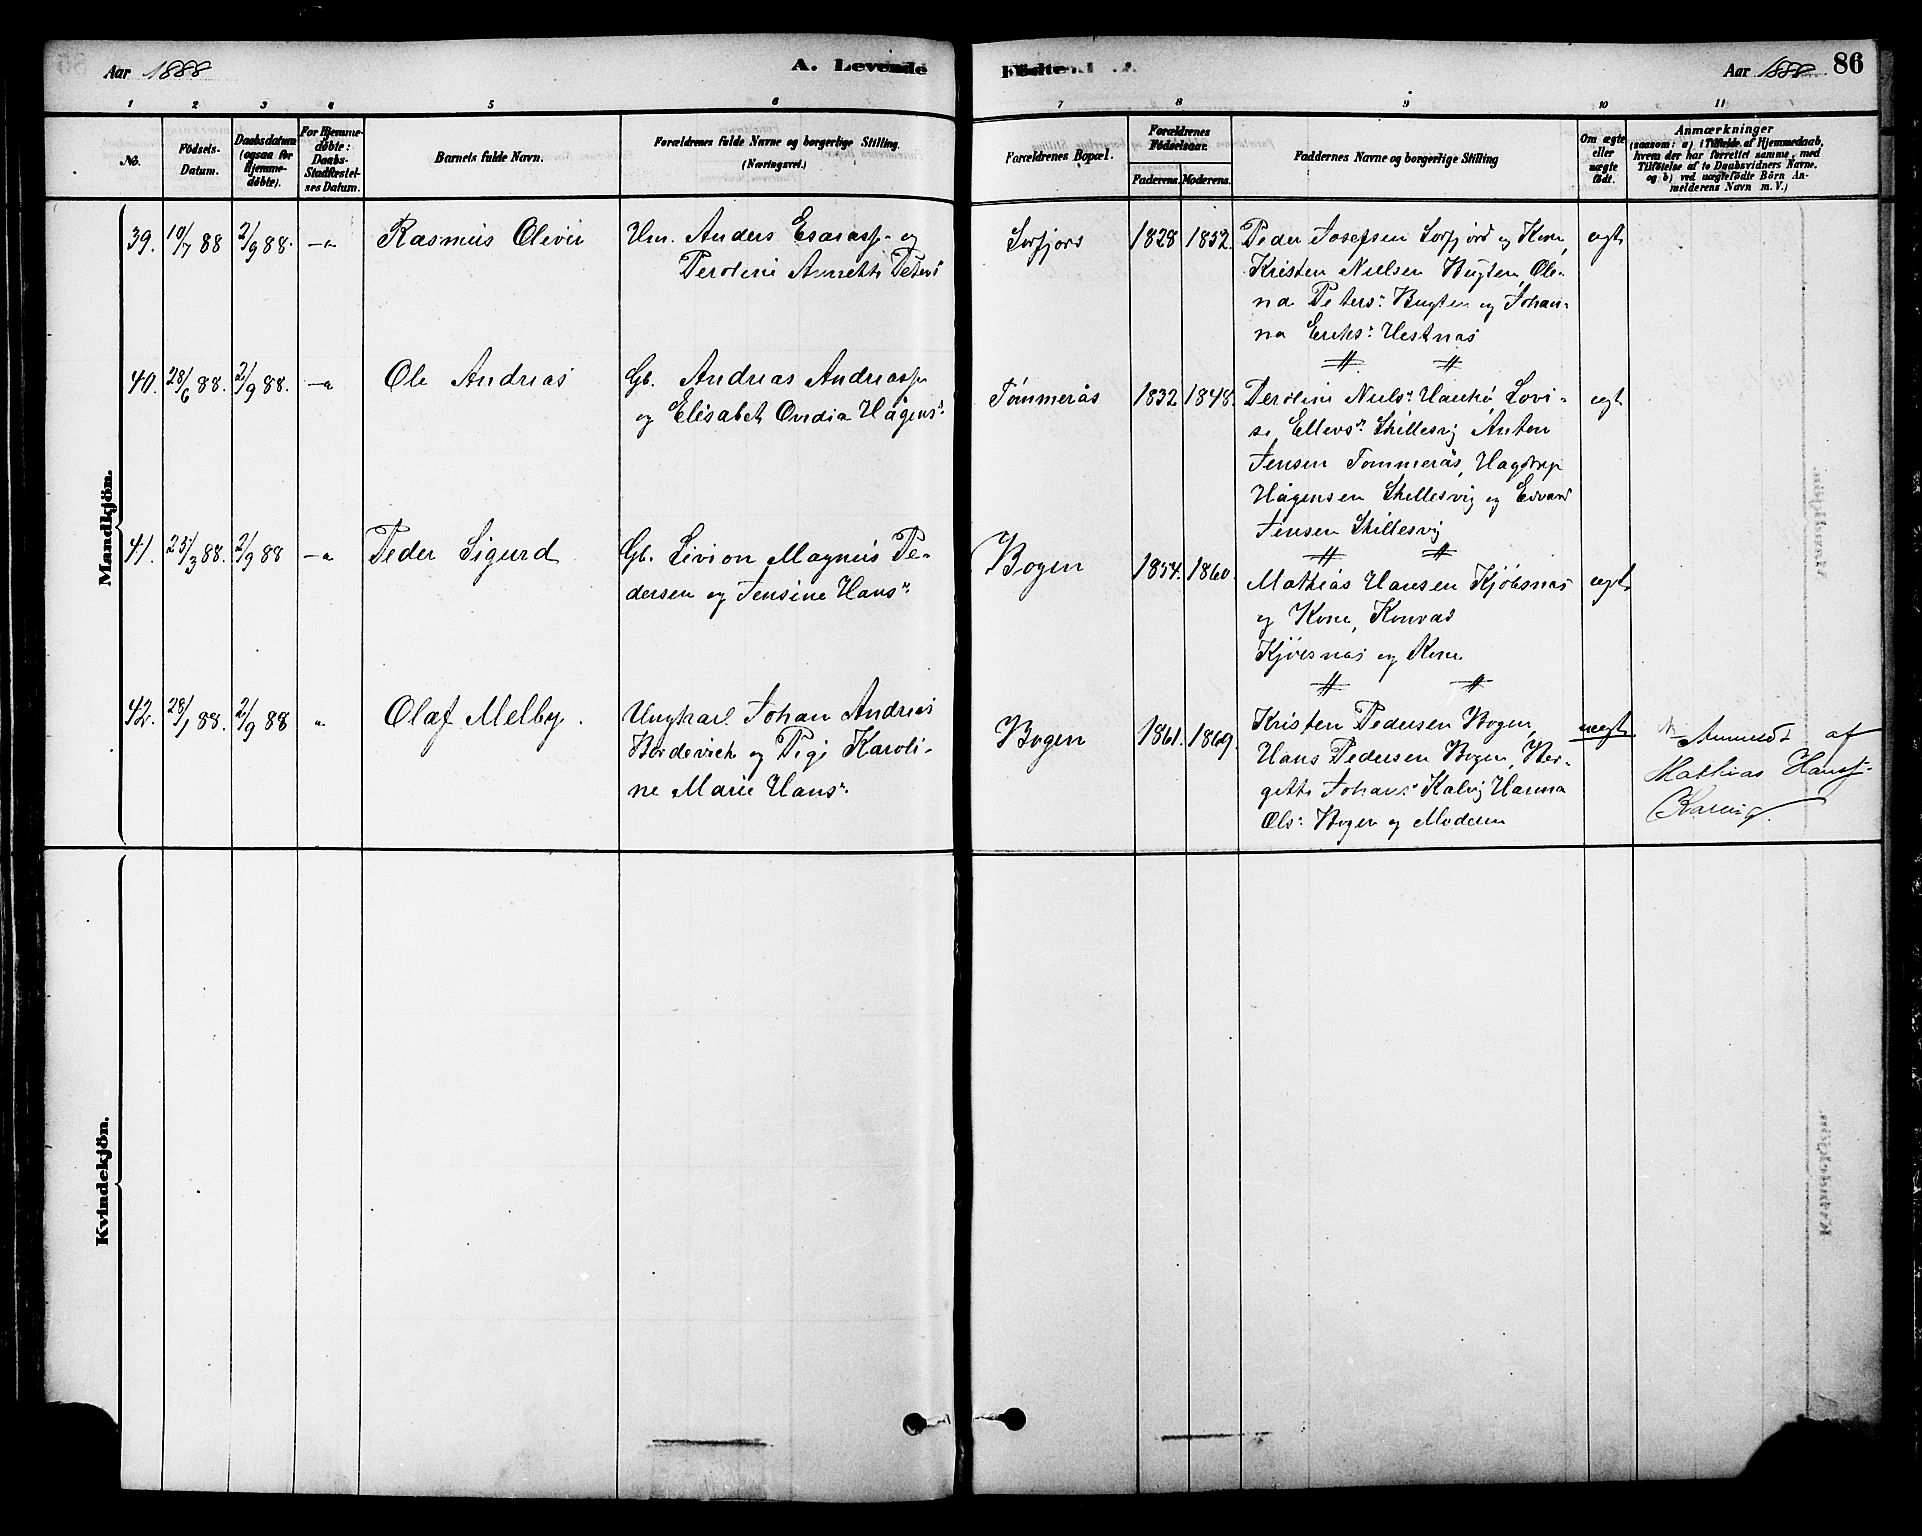 Aar 1888
A. Levende
Fødte
Aar 1888
86
1 2 3 4 5 6 7 8 9 10 11
No.
Födsels-
Datum.
Daabsdatum
(ogsaa for
Hjemme-
döbte).
For Hjemme-
döbte:
Daabs-
Stadfæstel-
ses Datum.
Barnets fulde Navn.
Forældrenes fulde Navne og borgerlige Stilling.
(Næringsvei.)
Forældrenes Bopæl.
Forældrenes
Födselsaar.
Faderens. Moderens.
Faddernes Navne og borgerlige Stilling
Om ægte
eller
uægte
født.
Anmærkninger
(saasom: a) i Tilfælde af Hjemmedaab,
hvem der har forrettet samme, med
Tilföielse af to Daabsvidners Navne.
og b) ved uægtefödte Börn An-
melderens Navn m. V.)
Mandkjön.
39. 10/7 88 2/9 88. —"
Rasmus Oliver
Um. Anders Esaiass. og
Peroline Annette Peters
Sorfjord
1828 1852
Peder Josefsen Sorfjord og Kone,
Kristen Nielsen Bugten, Ole-
na Peters: Bugten og Johan-
na Eriks: Vestnæs
ægt
40. 28/6 88. 2/9 88. —"
Ole Andreas
Gb. Andreas Andreass.
og Elisabet Ovidia Hågens:
Tømmerås
1832 1848.
Peroline Niels: Lovi-
se Ellevs: Skillesvig Anton
Jensen Tømmerås,
Hågensen Skillesvig og Edvard
Jensen Skillesvig
ægt
41. 25/3 88. 2/9 88 —"
Peder Sigurd
Gb. Sivion Magnus Pe-
dersen og Jensine Hans:
Bogen
1854. 1860.
Mathias Hansen
og Kone, Konrad
Kjöesnæs og Kone
ægt
42. 28/1 88. 2/9 88 "
Olaf Melby.
Ungkarl Johan Andreas
Bordevich og Pige Karoli-
ne Marie Hans:
Bogen
1861. 1869.
Kristen Pedersen Bogen,
Hans Pedersen Bogen, Ber-
gette Johans: Kalvig Hanna
Ols: Bogen og Moderen
uægt
Anmeldt af
Mathias Hans
Kvindekjön.